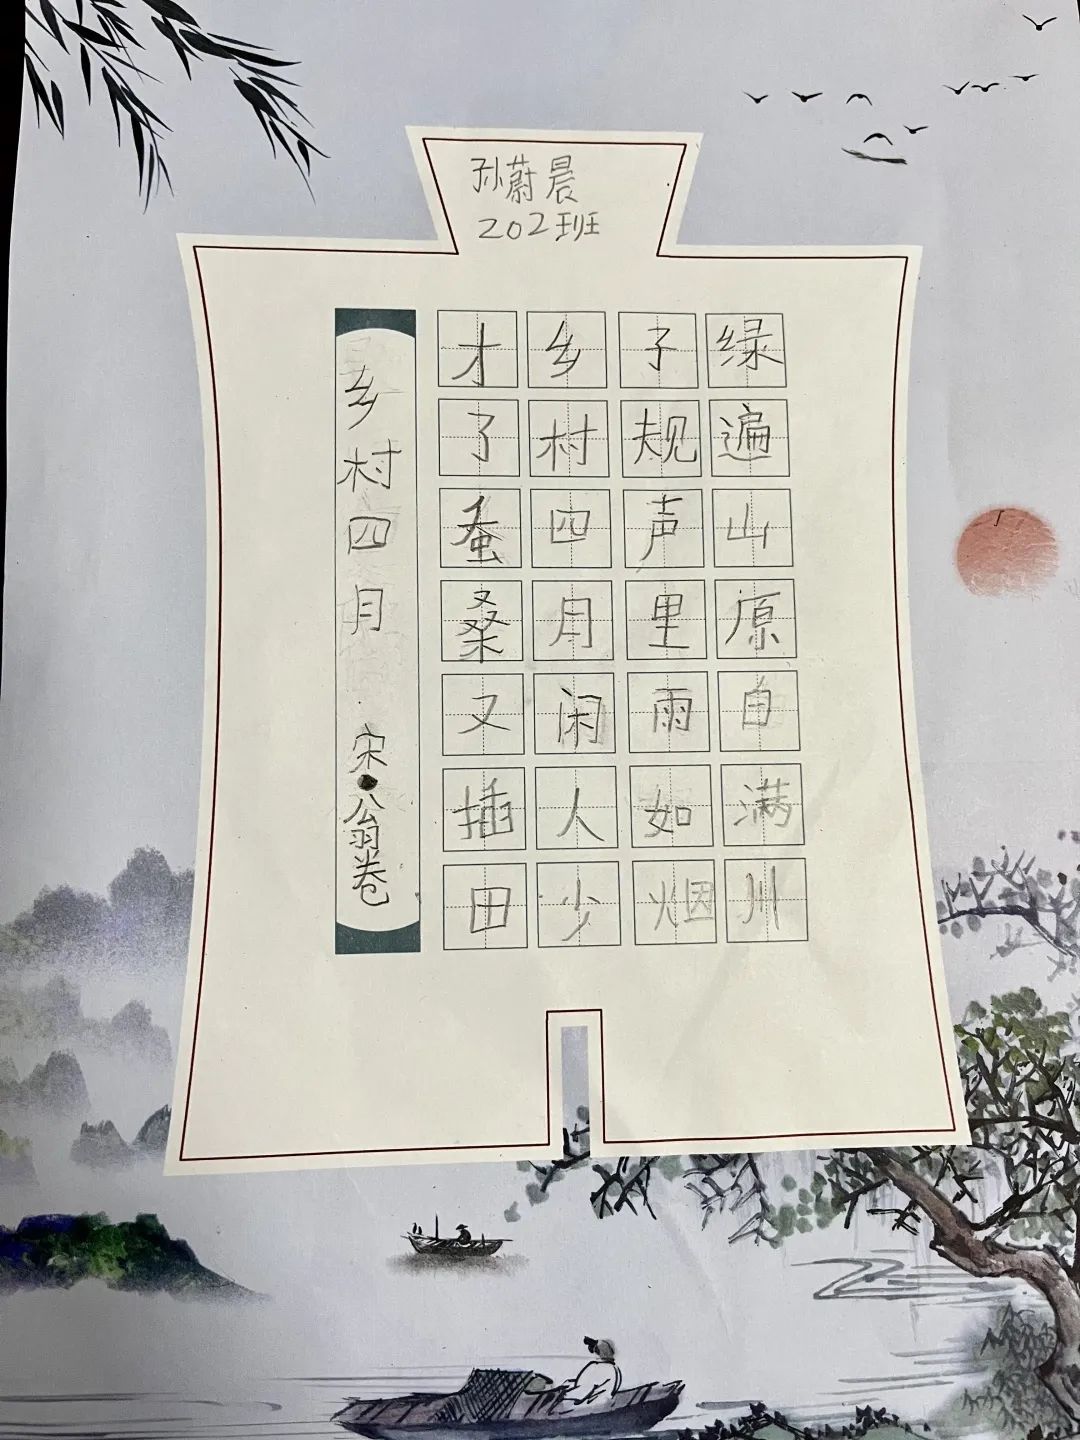 孙蔚晨
202班
绿遍山原自满川
子规声里雨如烟
乡村四月闲人少
才了蚕桑又插田
乡村四月 宋•翁卷